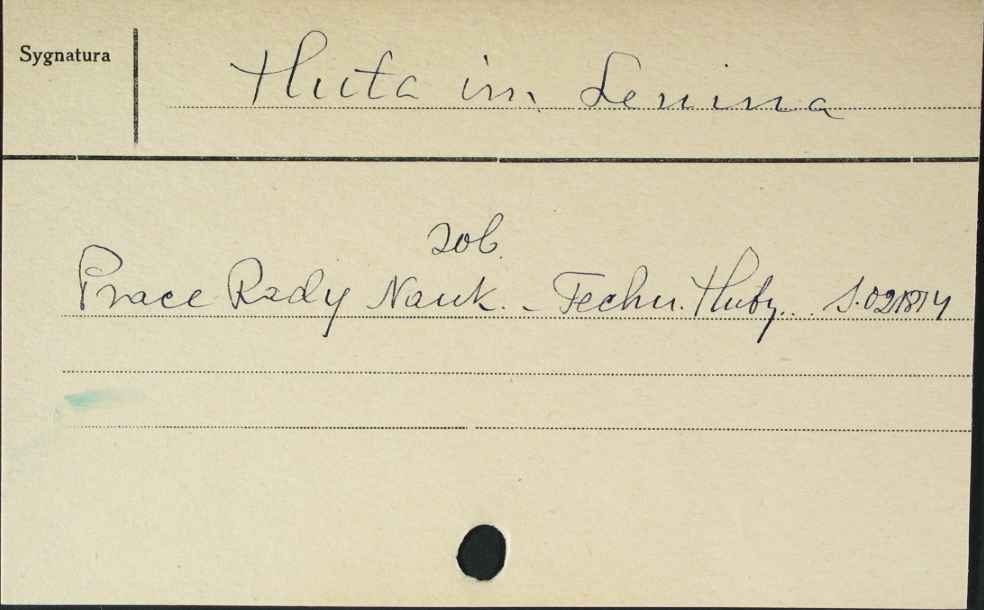 Sygnatura
Huta im. Lenina
zob.
Prace Rady Nauk. - Techn. Huty.. S.021814